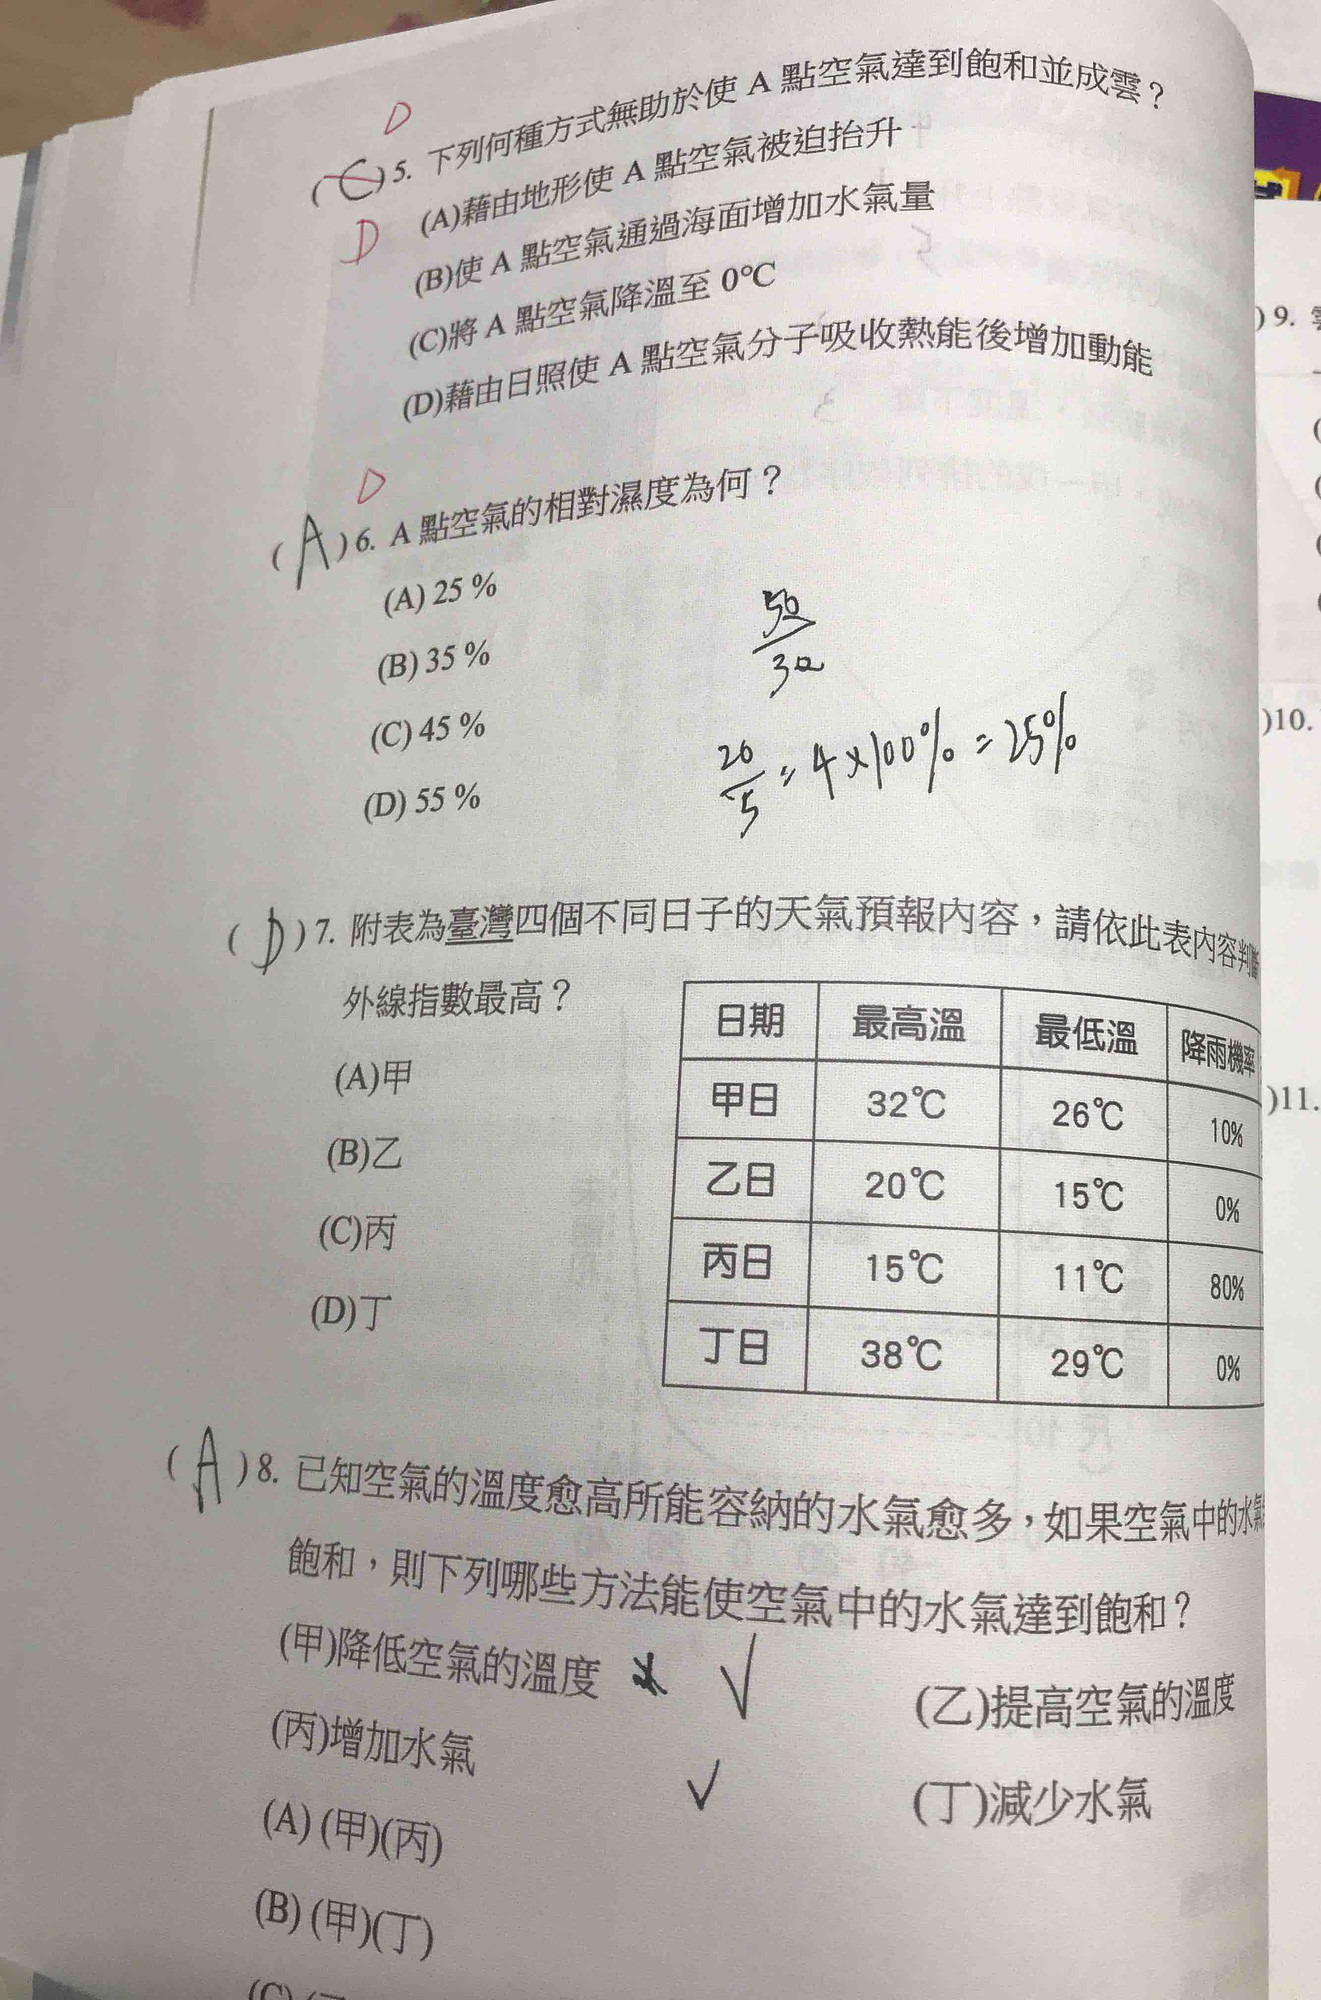 D
(C)5. 下列何種方式無助於使 A 點空氣達到飽和並成雲？
D
(A)藉由地形使 A 點空氣被迫抬升
(B)使 A 點空氣通過海面增加水氣量
(C)將 A 點空氣降溫至 0°C
(D)藉由日照使 A 點空氣分子吸收熱能後增加動能
D
(A)6. A 點空氣的相對濕度為何？
(A) 25 %
(B) 35 %
(C) 45 %
(D) 55 %
50
30
20
5
= 4×100% = 25%
(D)7. 附表為臺灣四個不同日子的天氣預報內容，請依此表內容判斷
外線指數最高？
(A)甲
(B)乙
(C)丙
(D)丁
日期 最高溫 最低溫 降雨機率
甲日 32℃ 26℃ 10%
乙日 20℃ 15℃ 0%
丙日 15℃ 11℃ 80%
丁日 38℃ 29℃ 0%
(A)8. 已知空氣的溫度愈高所能容納的水氣愈多，如果空氣中的水氣
飽和，則下列哪些方法能使空氣中的水氣達到飽和？
(甲)降低空氣的溫度 (乙)提高空氣的溫度
(丙)增加水氣 (丁)減少水氣
(A) (甲)(丙)
(B) (甲)(丁)
) 9.
)10.
)11.